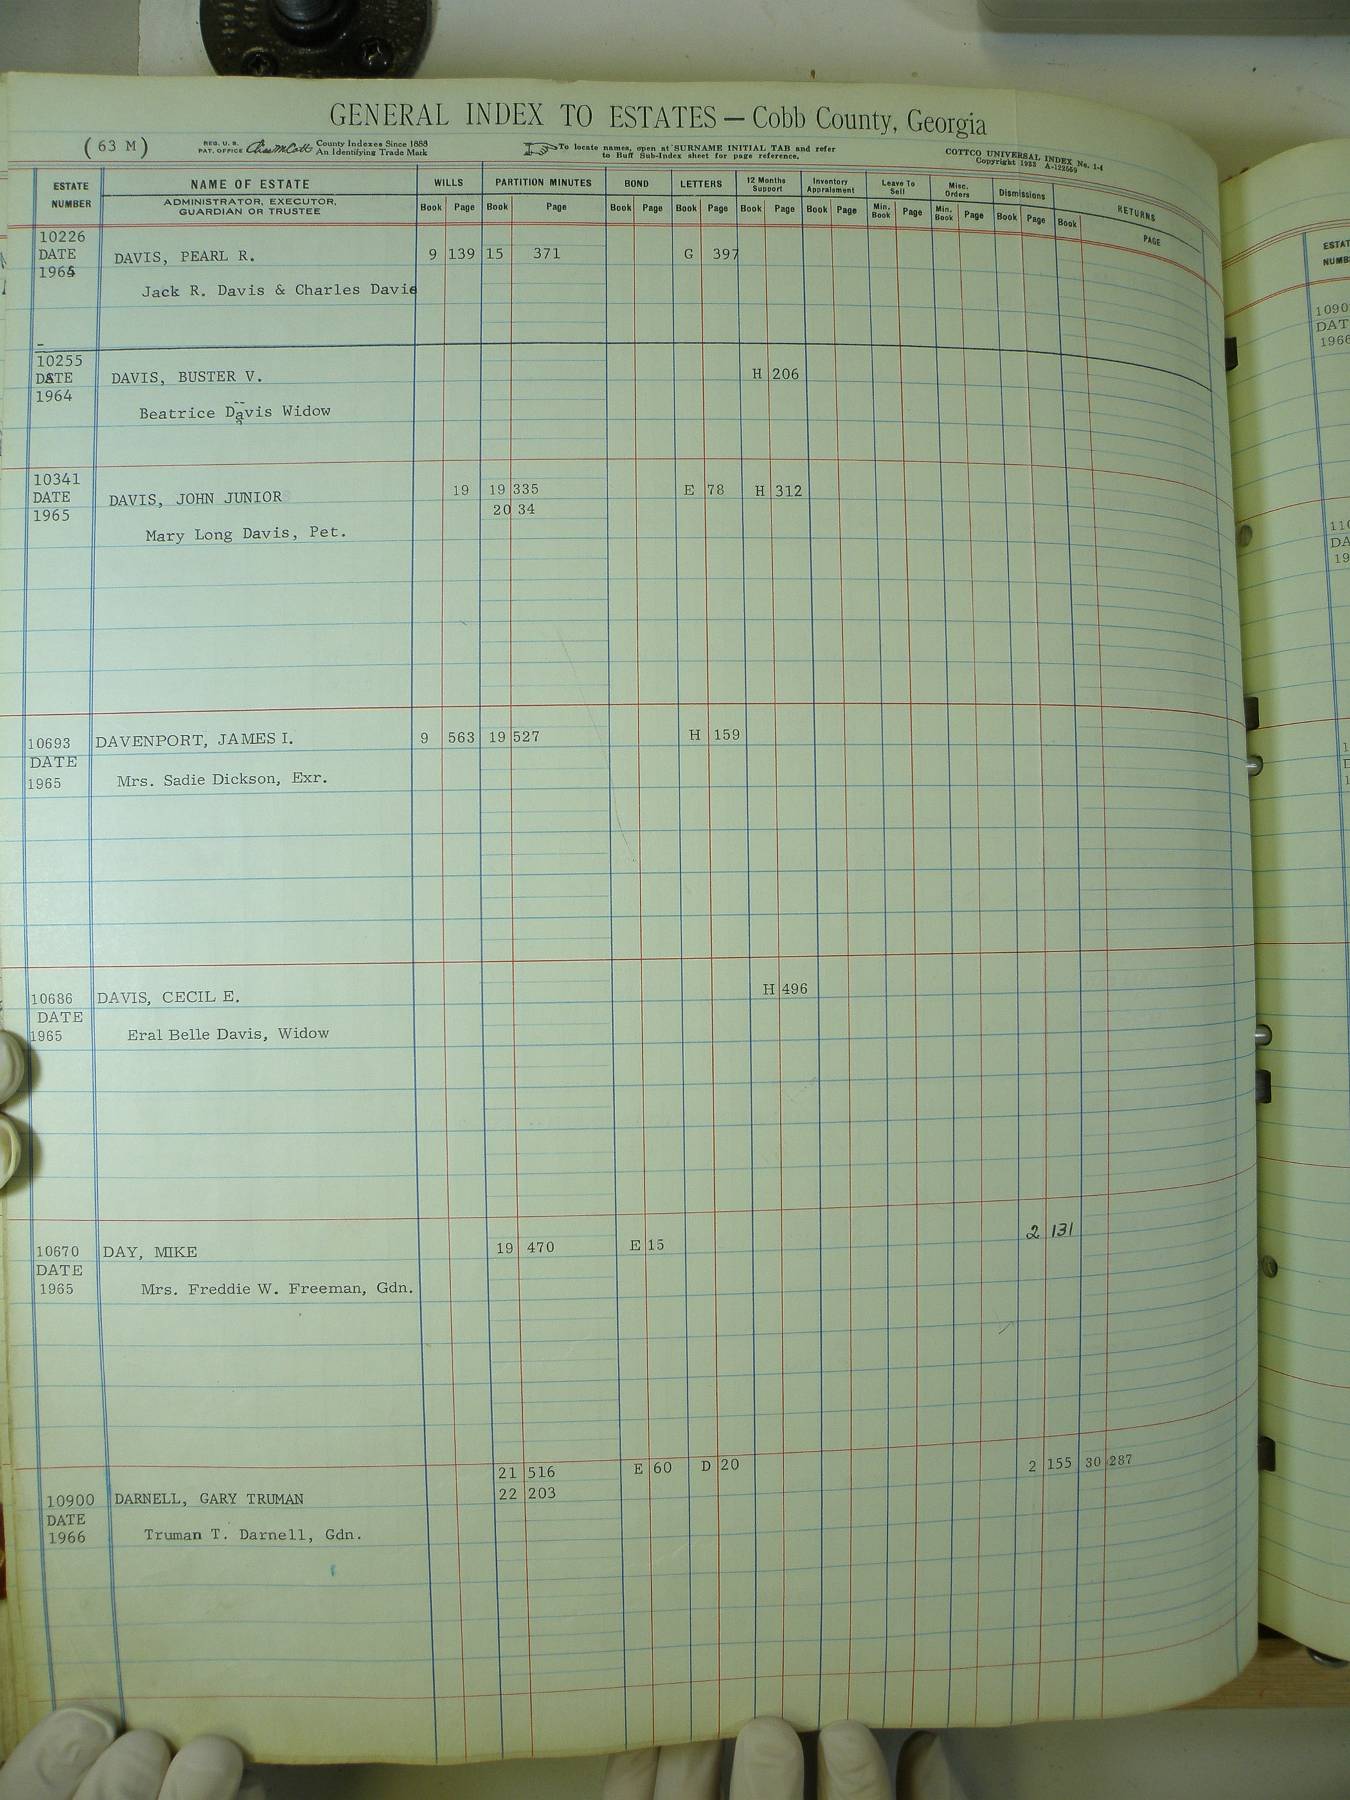 GENERAL INDEX TO ESTATES — Cobb County, Georgia
(63 M)
REG. U. S. PAT. OFFICE
County Indexes Since 1888
An Identifying Trade Mark
To locate names, open at SURNAME INITIAL TAB and refer
to Buff Sub-Index sheet for page reference.
COTTCO UNIVERSAL INDEX No. 1-4
Copyright 1933 A-122569
ESTATE NUMBER
NAME OF ESTATE
ADMINISTRATOR, EXECUTOR,
GUARDIAN OR TRUSTEE
WILLS Book Page
PARTITION MINUTES Book Page
BOND Book Page
LETTERS Book Page
12 Months Support Book Page
Inventory Appraisment Book Page
Leave To Sell Min. Book Page
Misc. Orders Min. Book Page
Dismissions Book Page
RETURNS Book PAGE
10226
DATE DAVIS, PEARL R. 9 139 15 371 G 397
1964
Jack R. Davis & Charles Davie
10255
DATE DAVIS, BUSTER V. H 206
1964
Beatrice Davis Widow
10341
DATE DAVIS, JOHN JUNIOR 19 19 335 E 78 H 312
1965 20 34
Mary Long Davis, Pet.
10693 DAVENPORT, JAMES I. 9 563 19 527 H 159
DATE
1965 Mrs. Sadie Dickson, Exr.
10686 DAVIS, CECIL E. H 496
DATE
1965 Eral Belle Davis, Widow
2 131
10670 DAY, MIKE 19 470 E 15
DATE
1965 Mrs. Freddie W. Freeman, Gdn.
21 516 E 60 D 20 2 155 30 287
10900 DARNELL, GARY TRUMAN 22 203
DATE
1966 Truman T. Darnell, Gdn.